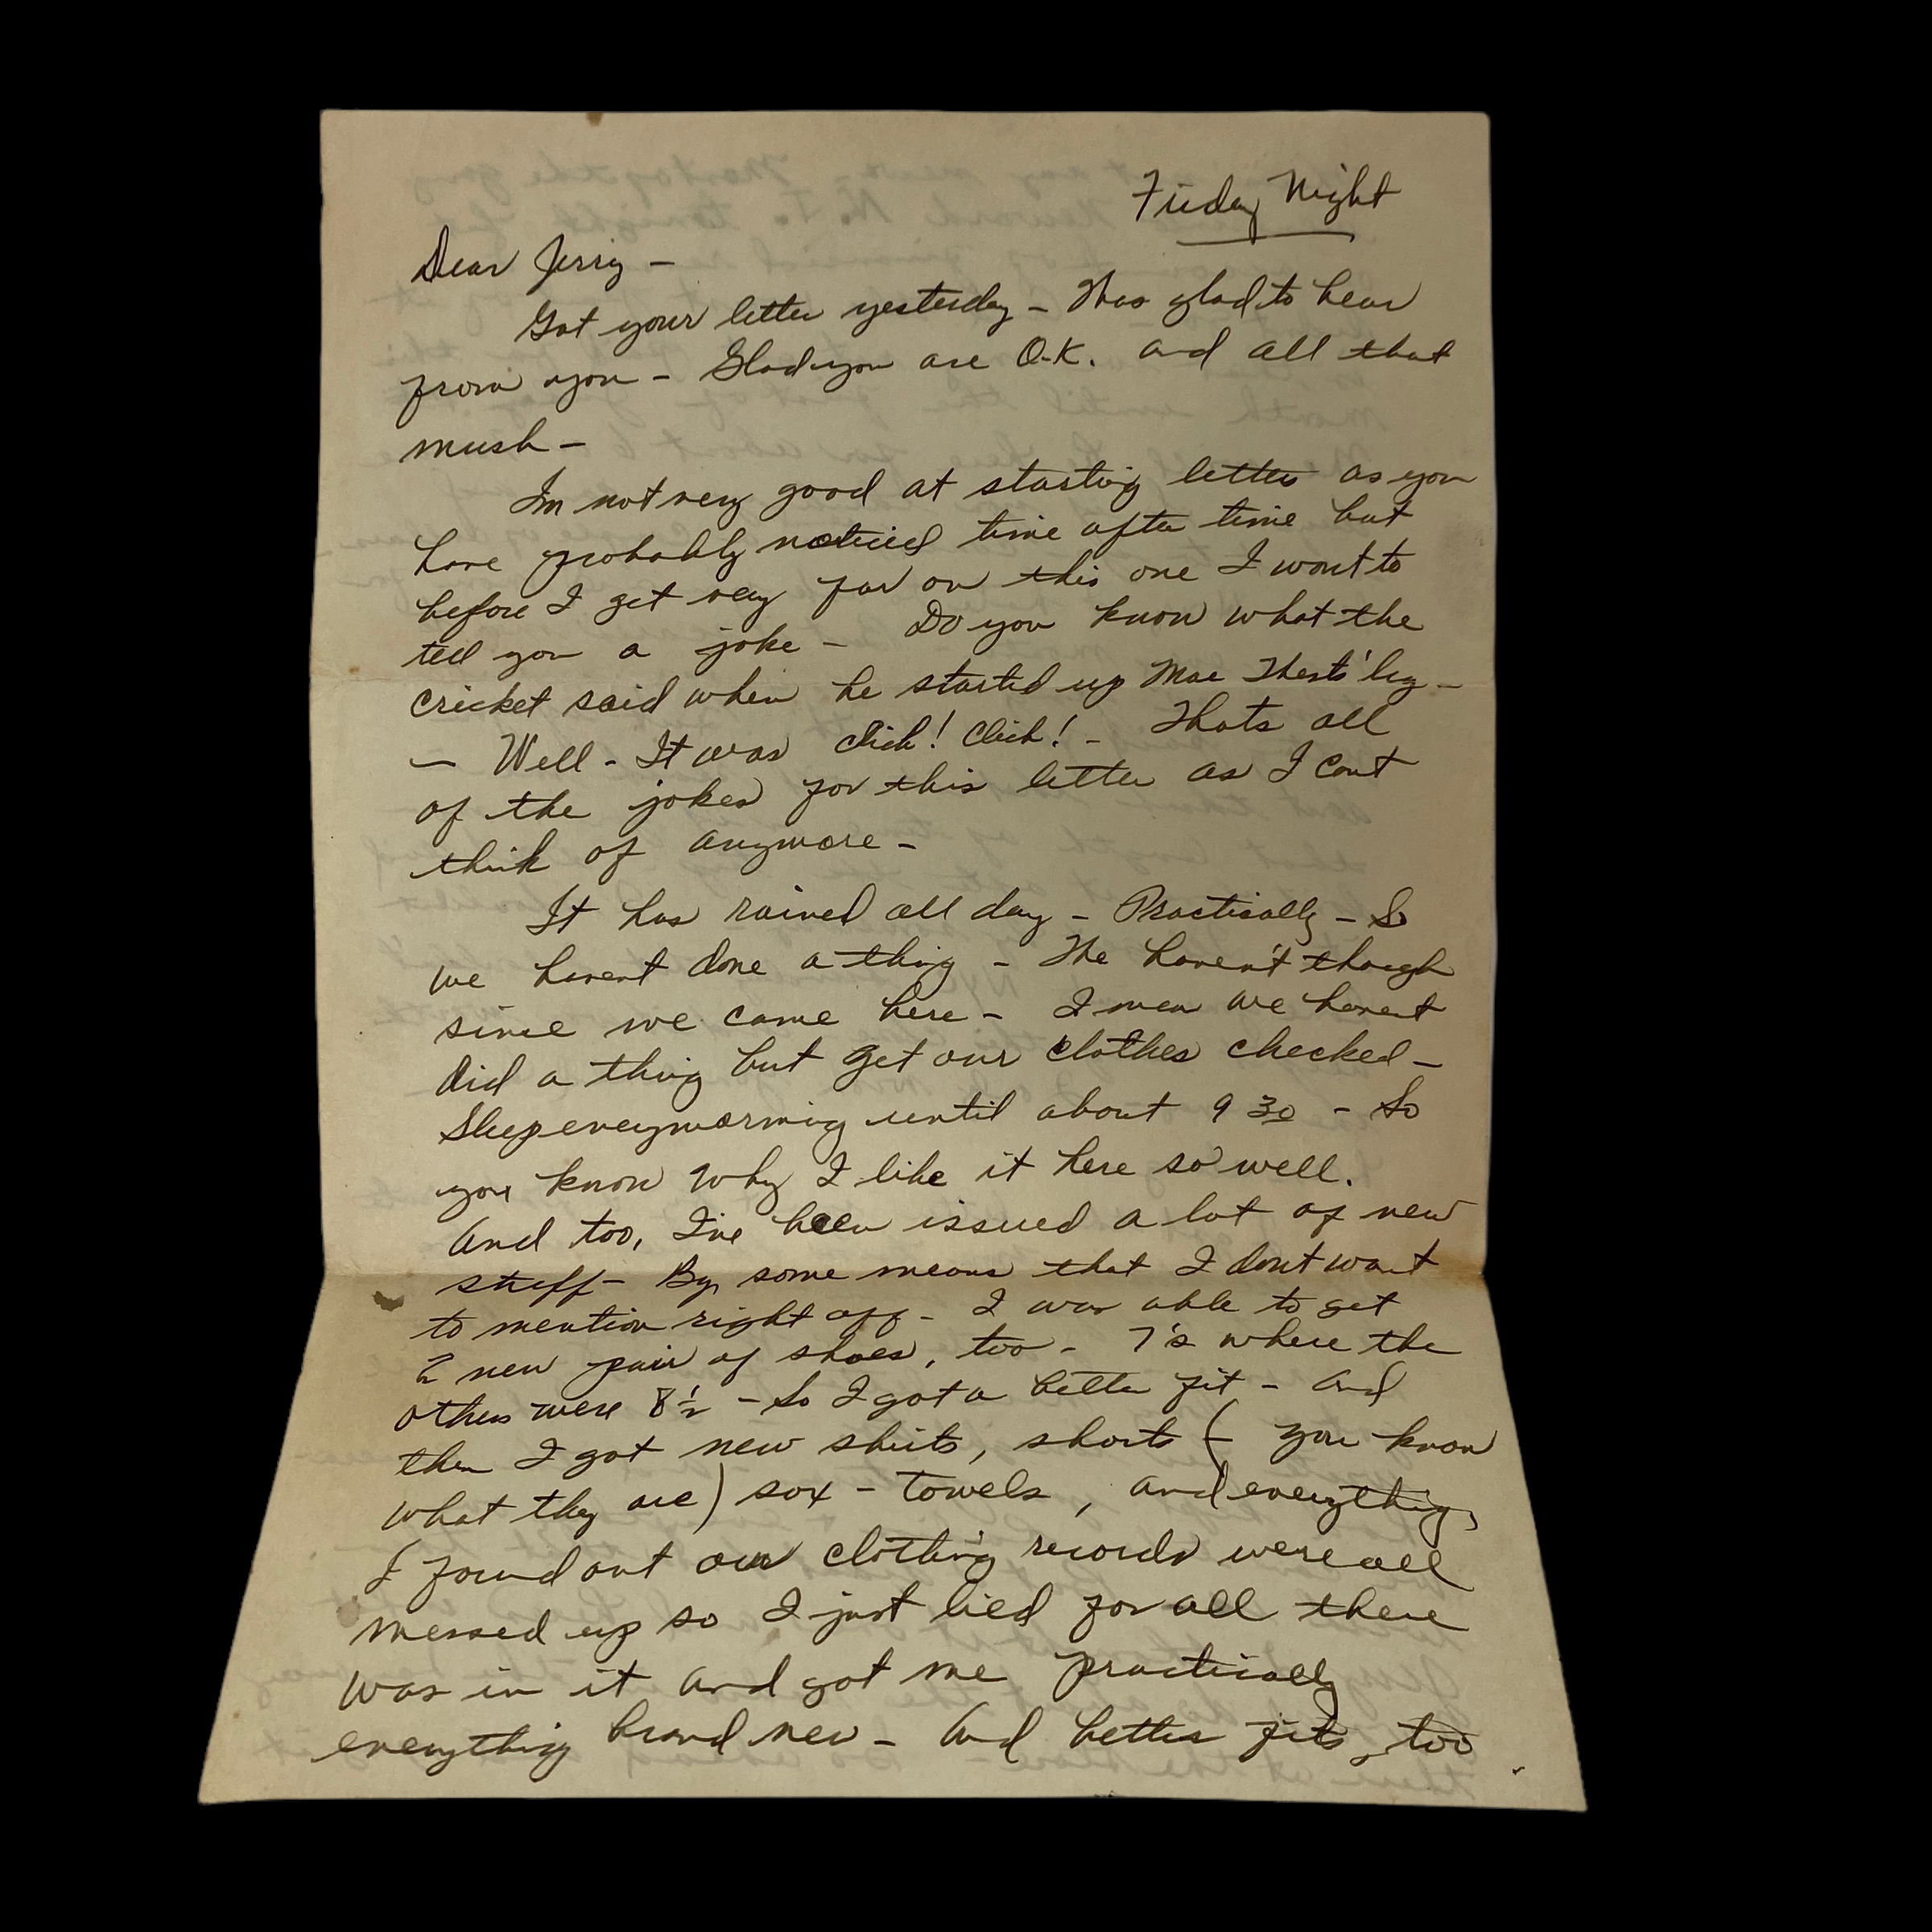 Friday Night
Dear Jerry -
Got your letter yesterday - Was glad to hear
from you - Glad you are O.K. and all that
mush -
Im not very good at starting letters as you
have probably noticed time after time but
before I get very far on this one I want to
tell you a joke - Do you know what the
cricket said when he started up Mae Wests' leg -
- Well - It was Click! Click! - Thats all
of the jokes for this letter as I cant
think of anymore -
It has rained all day - Practically - So
we havent done a thing - We haven't though
since we came here - I mean we havent
did a thing but get our clothes checked -
Sleep everymorning until about 9 30 - So
you know why I like it here so well.
And too, I've been issued a lot of new
stuff - By some means that I dont want
to mention right off - I was able to get
2 new pair of shoes, too - 7's where the
others were 8½ - So I got a better fit - And
then I got new shirts, shorts (- you know
what they are) sox - towels, and everything,
I found out our clothing records were all
messed up so I just lied for all there
was in it and got me practically
everything brand new - And better fits, too